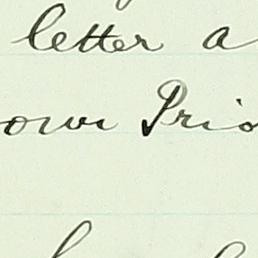 letter a
own Pris